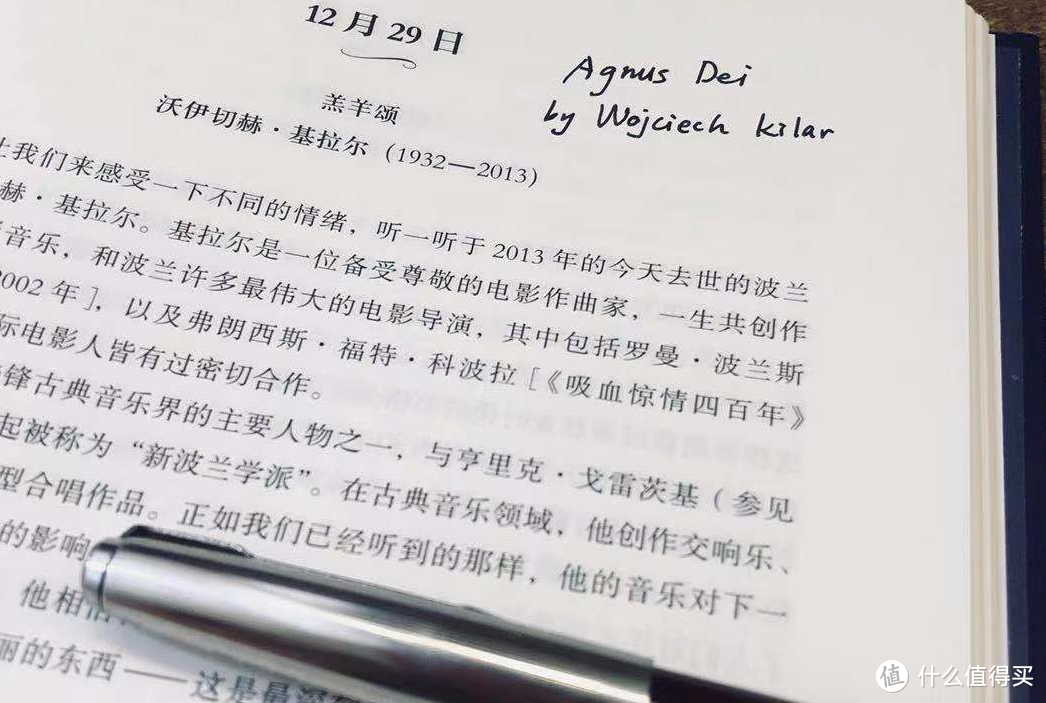 12月29日
Agnus Dei
by Wojciech Kilar
羔羊颂
沃伊切赫·基拉尔（1932—2013）
让我们来感受一下不同的情绪，听一听于2013年的今天去世的波兰
赫·基拉尔。基拉尔是一位备受尊敬的电影作曲家，一生共创作
音乐，和波兰许多最伟大的电影导演，其中包括罗曼·波兰斯
2002年］，以及弗朗西斯·福特·科波拉［《吸血惊情四百年》
际电影人皆有过密切合作。
锋古典音乐界的主要人物之一，与亨里克·戈雷茨基（参见
起被称为“新波兰学派”。在古典音乐领域，他创作交响乐、
型合唱作品。正如我们已经听到的那样，他的音乐对下一
的影响
他相信
丽的东西——这是最深
值 什么值得买